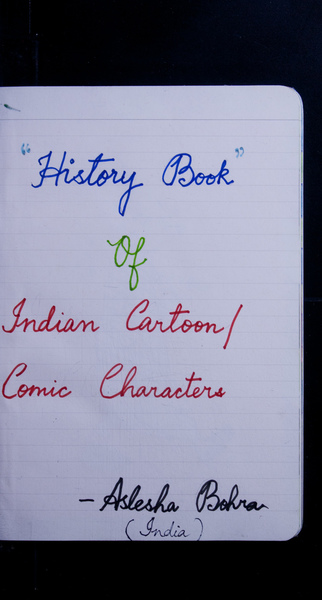 "History Book"
Of
Indian Cartoon/
Comic Characters
- Aslesha Bohra
(India)